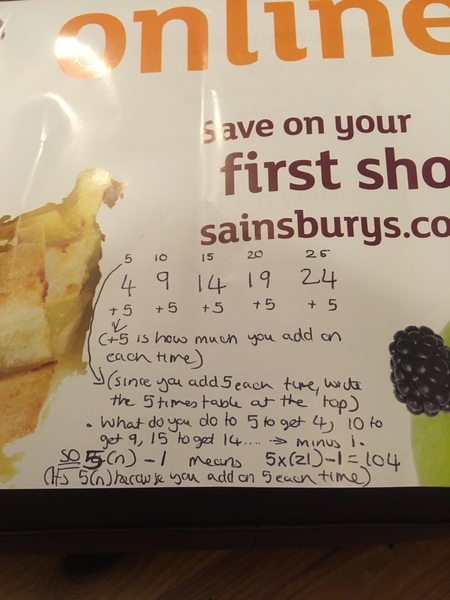 online
Save on your
first sho
sainsburys.co
5 10 15 20 25
4 9 14 19 24
+5 +5 +5 +5 +5
(+5 is how much you add on
each time)
(since you add 5 each time, write
the 5 times table at the top)
• What do you do to 5 to get 4, 10 to
get 9, 15 to get 14.... → minus 1.
SO 5(n) - 1 means 5x(21)-1=104
(It's 5(n) because you add on 5 each time)